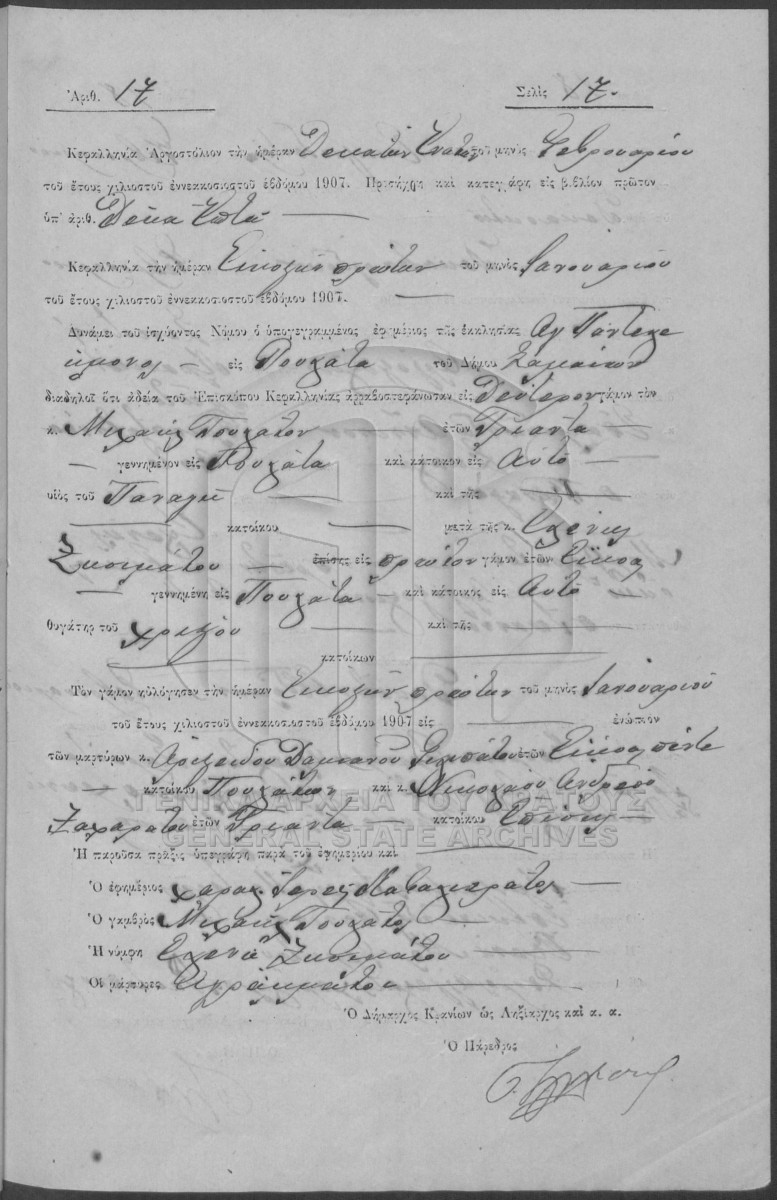 Ἀριθ. 17 Σελὶς 17.
Κεφαλληνία Ἀργοστόλιον τὴν ἡμέραν Δεκάτην Ἐνάτην τοῦ μηνὸς Φεβρουαρίου
τοῦ ἔτους χιλιοστοῦ ἐννεακοσιοστοῦ ἑβδόμου 1907. Προσήχθη καὶ κατεγράφη εἰς βιβλίον πρῶτον
ὑπ' ἀριθ. Δέκα Ἑπτά
Κεφαλληνία τὴν ἡμέραν Εἰκοστὴν πρώτην τοῦ μηνὸς Ἰανουαρίου
τοῦ ἔτους χιλιοστοῦ ἐννεακοσιοστοῦ ἑβδόμου 1907.
Δυνάμει τοῦ ἰσχύοντος Νόμου ὁ ὑπογεγραμμένος ἐφημέριος τῆς ἐκκλησίας Αγ Παντελε
ήμονος εἰς Πουλάτα τοῦ Δήμου Σαμαίων
διαδηλοῖ ὅτι ἀδείᾳ τοῦ Ἐπισκόπου Κεφαλληνίας ἀρραβοστεφάνωσαν εἰς Δεύτερον γάμον τὸν
κ. Μιχαὴλ Πουλάτον ἐτῶν Τριάντα
γεννημένον εἰς Πουλάτα καὶ κάτοικον εἰς Αὐτό
υἱὸς τοῦ Παναγῆ καὶ τῆς
κατοίκου μετὰ τῆς κ. Ἑλένης
ἐπίσης εἰς πρῶτον γάμον ἐτῶν Εἴκοσι
γεννημένη εἰς Πουλάτα καὶ κάτοικος εἰς Αὐτό
θυγάτηρ τοῦ Χρήστου καὶ τῆς
κατοίκων
Τὸν γάμον ηὐλόγησεν τὴν ἡμέραν Εἰκοστὴν πρώτην τοῦ μηνὸς Ἰανουαρίου
τοῦ ἔτους χιλιοστοῦ ἐννεακοσιοστοῦ ἑβδόμου 1907 εἰς ἐνώπιον
τῶν μαρτύρων κ. Δαμιανοῦ ἐτῶν Εἴκοσι πέντε
κατοίκου Πουλάτων καὶ κ. Νικολάου Ἀνδρέου
Ζαχαράτου ἐτῶν Τριάντα κατοίκου Ἐπίσης
ΓΕΝΙΚΑ ΑΡΧΕΙΑ ΤΟΥ ΚΡΑΤΟΥΣ
GENERAL STATE ARCHIVES
Ἡ παροῦσα πρᾶξις ὑπεγράφη παρὰ τοῦ ἐφημερίου καὶ
Ὁ ἐφημέριος Χαραλ. Ἱερεὺς
Ὁ γαμβρὸς Μιχαὴλ Πουλάτος
Ἡ νύμφη Ἑλένη
Οἱ μάρτυρες Ἀγράμματοι
Ὁ Δήμαρχος Κρανίων ὡς Ληξίαρχος καὶ κ. α.
Ὁ Πάρεδρος